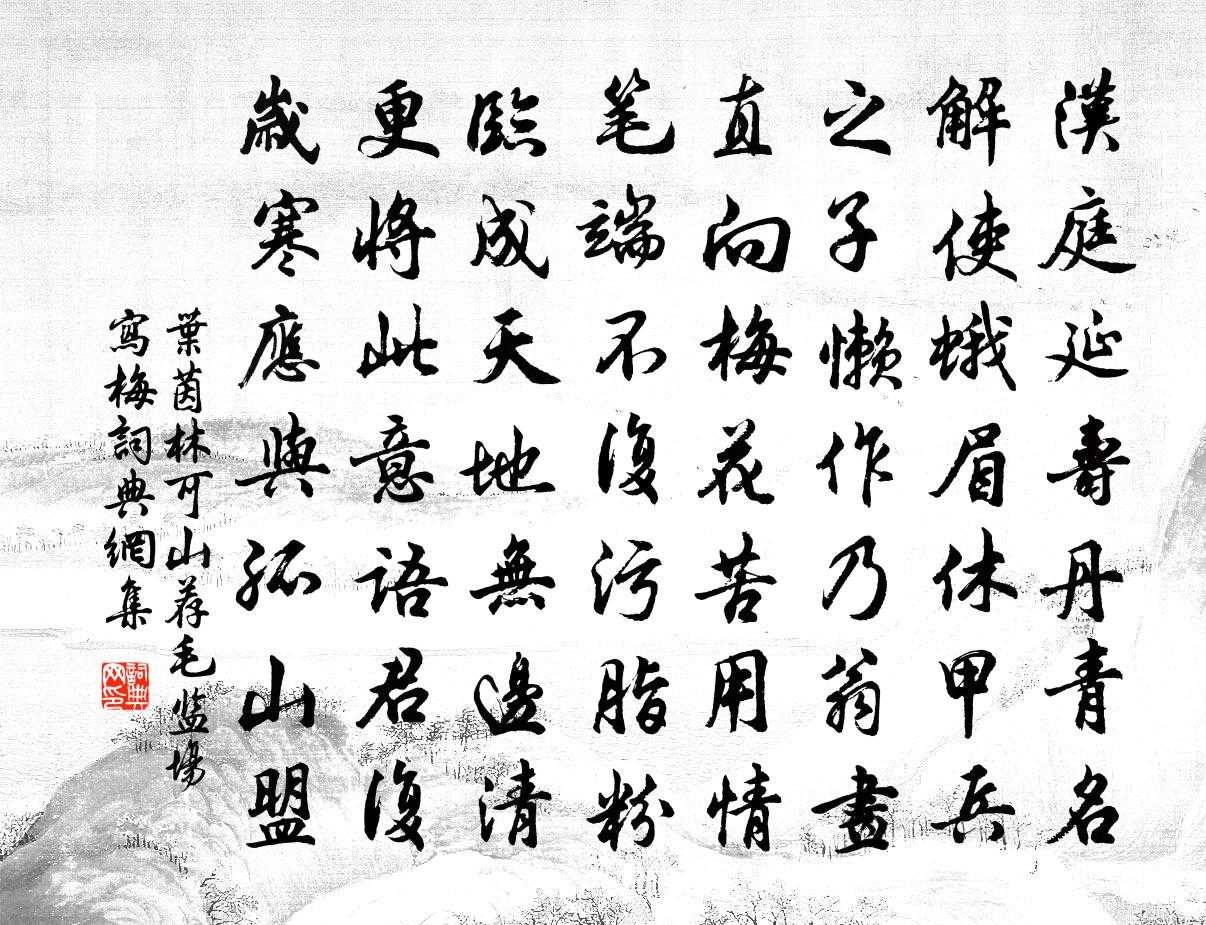 漢庭延壽丹青名
解使蛾眉休甲兵
之子懶作乃翁畫
直向梅花苦用情
笔端不復污脂粉
臨成天地無邊清
更将此意語君復
歲寒應與孤山盟
葉茵林可山荐毛监場
寫梅詞典網集
詞典网印